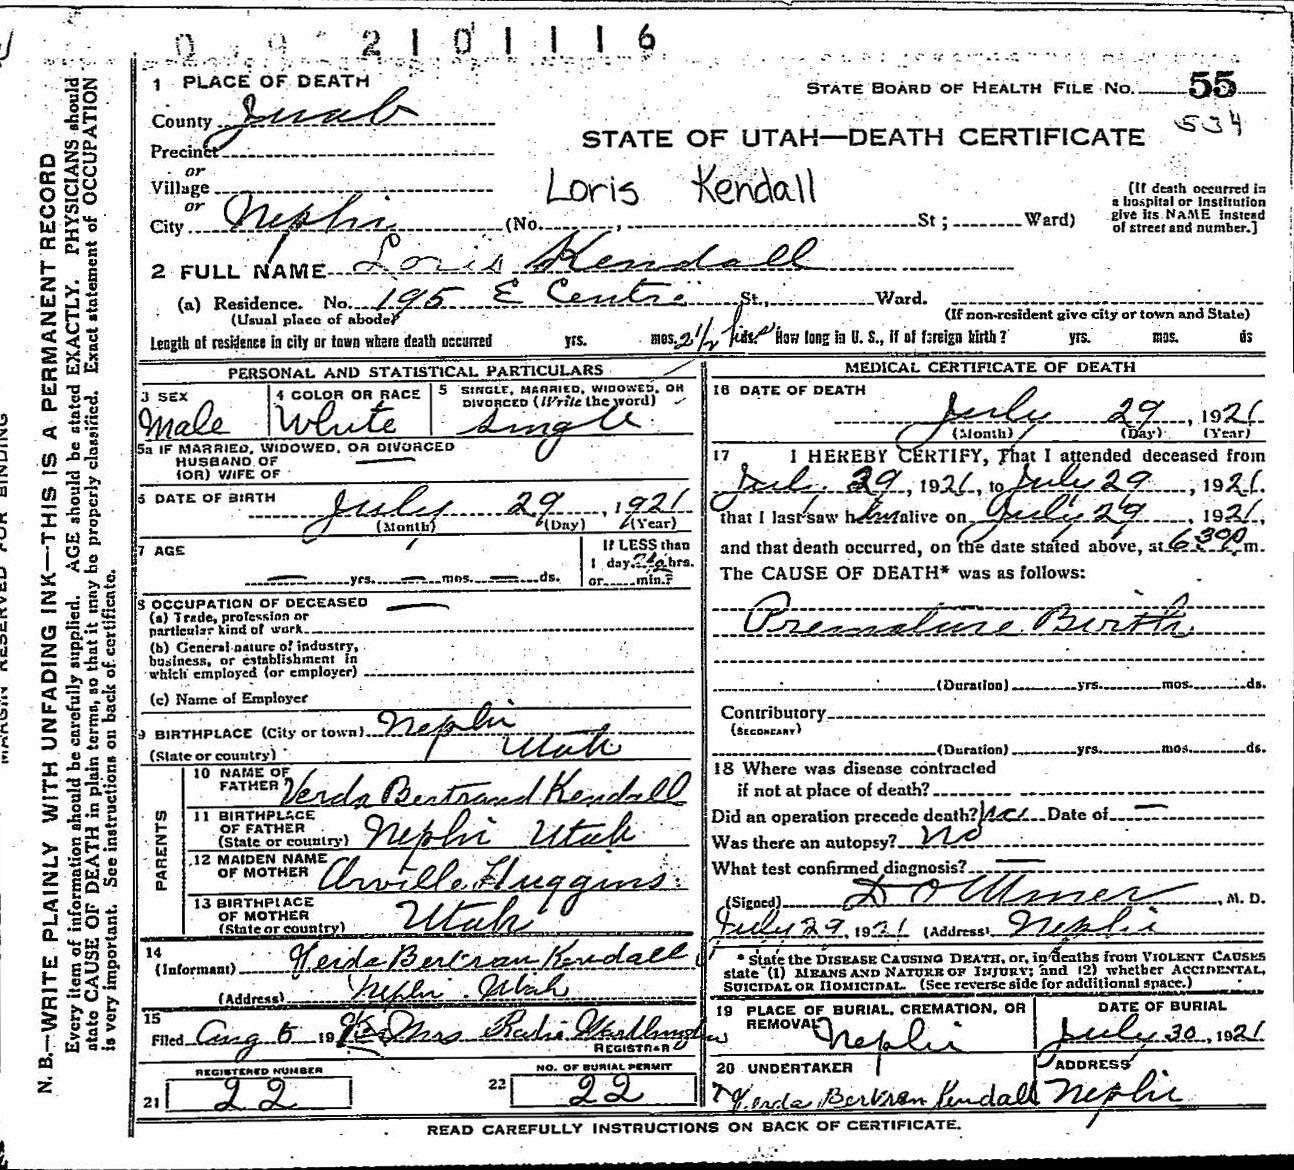 2101116
1 PLACE OF DEATH
STATE BOARD OF HEALTH FILE NO. 55
534
County Juab
STATE OF UTAH—DEATH CERTIFICATE
Precinct
or
Village
or
Loris Kendall
[If death occurred in
a hospital or institution
give its NAME instead
of street and number.]
City Nephi (No. , St; Ward)
2 FULL NAME Loris Kendall
(a) Residence. No. 195 E Centre St., Ward.
(Usual place of abode)
(If non-resident give city or town and State)
Length of residence in city or town where death occurred yrs. mos. 2 1/2 ds. How long in U. S., if of foreign birth? yrs. mos. ds
PERSONAL AND STATISTICAL PARTICULARS
3 SEX
Male
4 COLOR OR RACE
White
5 SINGLE, MARRIED, WIDOWED, OR
DIVORCED (Write the word)
Single
5a IF MARRIED, WIDOWED, OR DIVORCED
HUSBAND OF
(OR) WIFE OF —
6 DATE OF BIRTH July 29, 1921
(Month) (Day) (Year)
7 AGE
— yrs. — mos. — ds.
If LESS than
1 day, hrs.
or min.?
8 OCCUPATION OF DECEASED —
(a) Trade, profession or
particular kind of work
(b) General nature of industry,
business, or establishment in
which employed (or employer)
(c) Name of Employer
9 BIRTHPLACE (City or town) Nephi
(State or country) Utah
PARENTS
10 NAME OF
FATHER Verda Bertrand Kendall
11 BIRTHPLACE
OF FATHER
(State or country) Nephi Utah
12 MAIDEN NAME
OF MOTHER Orville Huggins
13 BIRTHPLACE
OF MOTHER
(State or country) Utah
14
(Informant) Verda Bertran Kendall
(Address) Nephi Utah
15
Filed Aug 5 19 Mrs
REGISTRAR
REGISTERED NUMBER
21 22
NO. OF BURIAL PERMIT
22 22
MEDICAL CERTIFICATE OF DEATH
16 DATE OF DEATH
July 29, 1921
(Month) (Day) (Year)
17 I HEREBY CERTIFY, That I attended deceased from
July 29, 1921, to July 29, 1921.
that I last saw him alive on July 29, 1921,
and that death occurred, on the date stated above, at 6:30 p.m.
The CAUSE OF DEATH* was as follows:
Premature Birth
(Duration) yrs. mos. ds.
Contributory
(SECONDARY)
(Duration) yrs. mos. ds.
18 Where was disease contracted
if not at place of death?
Did an operation precede death? No Date of —
Was there an autopsy? No
What test confirmed diagnosis? —
(Signed) , M. D.
July 29, 1921 (Address) Nephi
* State the DISEASE CAUSING DEATH, or, in deaths from VIOLENT CAUSES
state (1) MEANS AND NATURE OF INJURY; and (2) whether ACCIDENTAL,
SUICIDAL OR HOMICIDAL. (See reverse side for additional space.)
19 PLACE OF BURIAL, CREMATION, OR
REMOVAL Nephi
DATE OF BURIAL
July 30, 1921
20 UNDERTAKER
Verda Bertran Kendall
ADDRESS
Nephi
READ CAREFULLY INSTRUCTIONS ON BACK OF CERTIFICATE.
MARGIN RESERVED FOR BINDING
N. B.—WRITE PLAINLY WITH UNFADING INK—THIS IS A PERMANENT RECORD
Every item of information should be carefully supplied. AGE should be stated EXACTLY. PHYSICIANS should
state CAUSE OF DEATH in plain terms, so that it may be properly classified. Exact statement of OCCUPATION
is very important. See instructions on back of certificate.